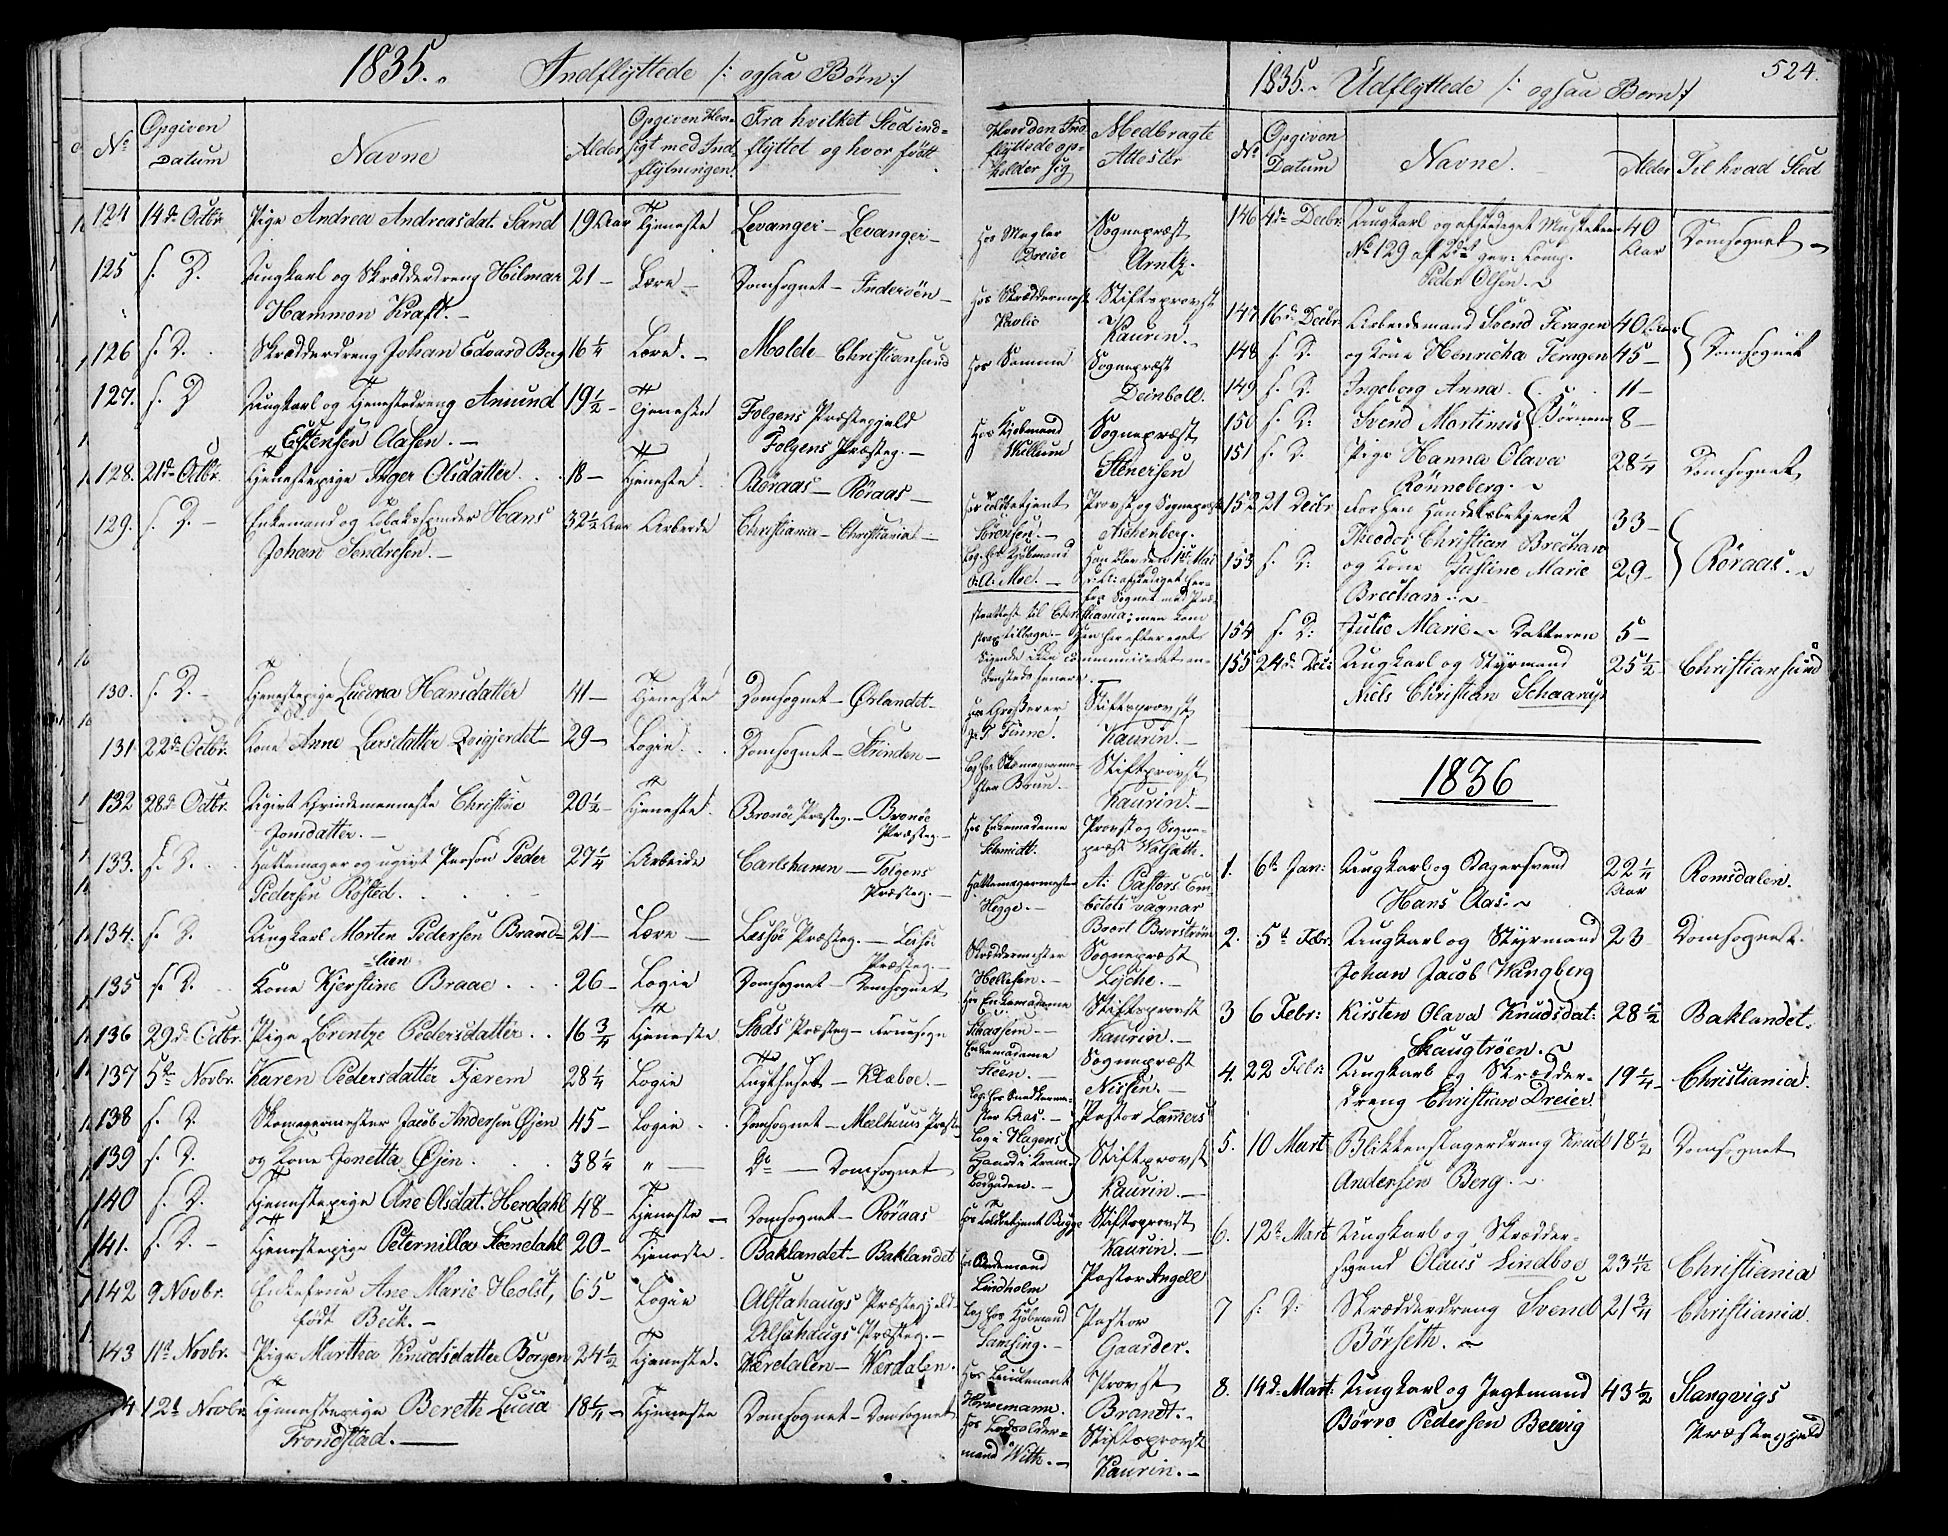 1835. Indflyttede /: ogsaa Børn :/
No
Opgiven Datum
Navne
Alder
Opgiven Hensigt med Indflytningen
Fra hvilket Sted indflyttet og hvor født
Hvor den Indflyttede opholder sig
Medbragte Attester
124 14de Octbr. Pige Andrea Andreasdat. Sand 19 Aar Tjeneste Levanger – Levanger – hos Megler Dreier Sognepræst Arntz.
125 s. D. Ungkarl og Skrædderdreng Hilmar
Hammon Kraft. – 21 – Lære – Domsognet – Inderøen – hos Skræddermest Stiftsprovst Kaurin. –
126 s. D. Skrædderdreng Johan Edvard Berg 16 1/4 Lære. – Molde – Christiansund hos Samme Sognepræst Deinboll.
127. s. D Ungkarl og Tjenestedreng Amund
Estensen Aasen. – 19 1/2 – Tjeneste Folgens Præstegjeld
Folgens Præsteg. – hos Kjøbmand Sognepræst Stenersen
128. 21de Octbr. Tjenestepige Inger Olsdatter 18 – Tjeneste. Røraas – Røraas – hos Toldbetjent Sørensen. – Provst og Sognepræst Aschenberg. –
129. s. D. – Enkemand og Tobaksspinder Hans
Johan Sendresen. – 32 1/2 Aar Arbeide Christiania – Christiania – Log. hos Kjøbmand Moe. – Han blev den 1ste Mai
strattest til Christiania; men kom
strax tilbage. –
130. s. D. – Tjenestepige Lucina Hansdatter 41 – Tjeneste Domsognet – Ørlandet – hos Grosserer Finne. Stiftsprovst Kaurin. –
131 22de Octbr. Kone Anne Larsdatter Qvigjerdet – 29 – Logie. Domsognet – Strinden – Log. hos Skomagermester Brun. – Stiftsprovst Kaurin. –
132 28de Octbr. Ugivt Qvindemenneske Christine
Jonsdatter. – 20 1/2 – Tjeneste. Brønøe Præsteg. – Brønøe
Præsteg. – hos Enkemadame Schmidt. Provst og Sognepræst
133. s. D. Hattemager og ugivt Person Peder
Pedersen Røsted. 27 1/4 Arbeide Carlshamn – Folgens
Præsteg. – Hattemagermester Hegge. – A: Pastors Embetets vägnar
134. s. D. Ungkarl Morten Pedersen Brand-
lien 21 – Lære – Lessøe Præsteg. – Lessøe
Præsteg. – Skræddermester Hellesen. – Sognepræst
135 s. D. Kone Kjerstine Braae 26 – Logie Domsognet – Domsognet hos Enkemadame Stiftsprovst Kaurin. –
136 29de Octbr. Pige Lorentze Pedersdatter 16 3/4 Tjeneste Stods Præsteg – Fruesogn Enkemadame Steen. – Sognepræst Nissen. –
137 5te Novbr. Karen Pedersdatter Tjærem 28 1/4 Logie Tugthuset – Klæboe. – Log. hos Snedkermester Aas. – Pastor Lammers
138 s. D. Skomagermester Jacob Andersen Øjen 45 – Logie Domsognet – Meelhuus Præste Logie Hagens
Gaard Stiftsprovst Kaurin. –
139 s. D. og Kone Jonetta Øjen 38 1/4 " – Do – Domsognet
140 s. D. Tjenestepige Ane Olsdat. Herdahl 48 – Tjeneste – Domsognet – Røraas hos Toldbetjent Bugge Stiftsprovst Kaurin. –
141. s. D. – Tjenestepige Peternilla Steendahl 20 – Tjeneste Baklandet – Baklandet hos Lindholm Pastor Angell
142 9 Novbr. Enkefrue Ane Marie Holst,
født Beck. – 65 – Logie Alstahaugs Præstegjeld –
Alstahaugs Præsteg. – Log. hos Kjøbmand Pastor Gaarder.
143 11te Novbr. Pige Martha Knudsdatter Borgen 24 1/2 Tjeneste. Værdalen – Værdalen. hos Lieutenant Hornemann. Provst Brandt. –
12te Novbr. Tjenestepige Bereth Lucia
Trondstad. – 18 1/4 – Tjeneste Domsognet – Domsognet hos With. – Stiftsprovst Kaurin. –
524.
1835. Udflyttede /: ogsaa Børn :/
No Opgiven Datum Navne. Alder Til hvad Sted
146 4de Decbr. Ungkarl og afskediget Musketeer
No 129 af 2det gev: Comp.
Peder Olsen. 40 Aar Domsognet –
147 16de Decbr. Arbeidsmand Svend Feragen 40 Aar
148 s. D. og Kone Henricha Feragen 45 – Domsognet
149 s. D. Ingeborg Anna 11 –
150 s. D: Svend Martinus Børnene 8 –
151 s. D. Pige Hanna Olava
Rønneberg. 28 1/4 Domsognet
152 21 Decbr Forhen Handelsbetjent
Theodor Christian Brechan 33 –
153 s. D: og Kone Justine Marie
Brechan 29 – Røraas.
154 s. D: Julie Marie – Datteren 5 –
155 24de Dec: Ungkarl og Styrmand
Niels Christian Schaarup 25 1/2 – Christiansund
1836
1. 6te Jan: Ungkarl og Bagersvend
Hans Aas. 22 1/4 Aar Romsdalen.
2. 5te Febr. Ungkarl og Styrmand
Johan Jacob Wangberg 23 Domsognet.
3 6 Febr: Kirsten Olava Knudsdat:
Haugtrøen. 28 1/2 Baklandet.
4. 22 Febr Ungkarl og Skrædder-
dreng Christian Dreier. 19 1/4 – Christiania.
5. 10 Mart Blikkenslagerdreng Knud
Andersen Berg. 18 1/2 Domsognet
6. 12te Mart Ungkarl og Skrædder-
svend Olaus Lindboe 23 11/12 Christiania
7 s: D: Skrædderdreng Svend
Børseth. 21 3/4 Christiania.
8. 14de Mart: Ungkarl og Jegtmand
Børre Pedersen Brevig 43 1/2 Stangvigs
Præstegjeld